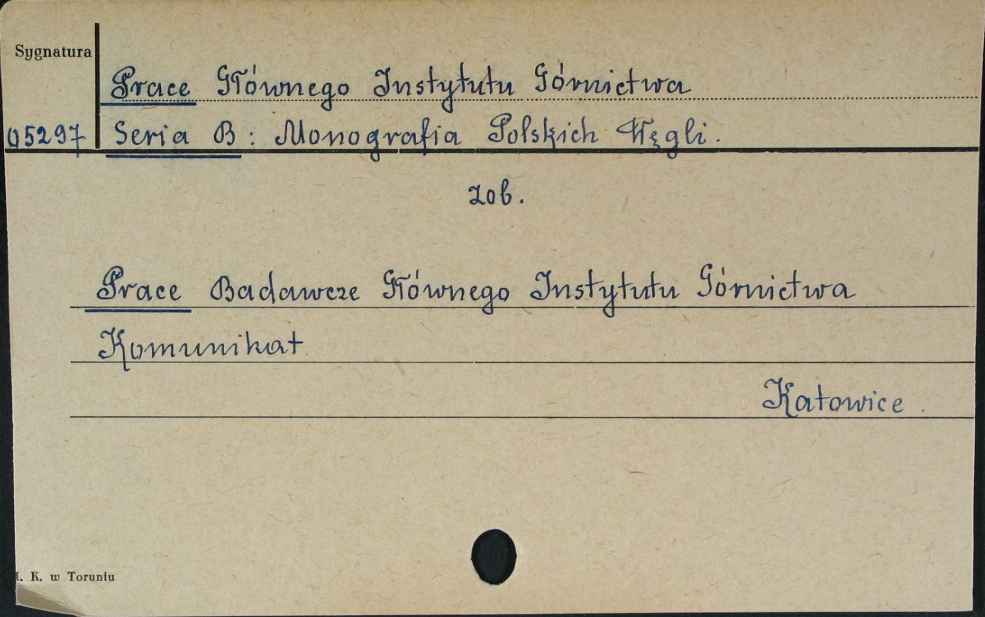 Sygnatura
Prace Głównego Instytutu Górnictwa
05297 Seria B : Monografia Polskich Węgli.
zob.
Prace Badawcze Głównego Instytutu Górnictwa
Komunikat
Katowice.
I. K. w Toruniu